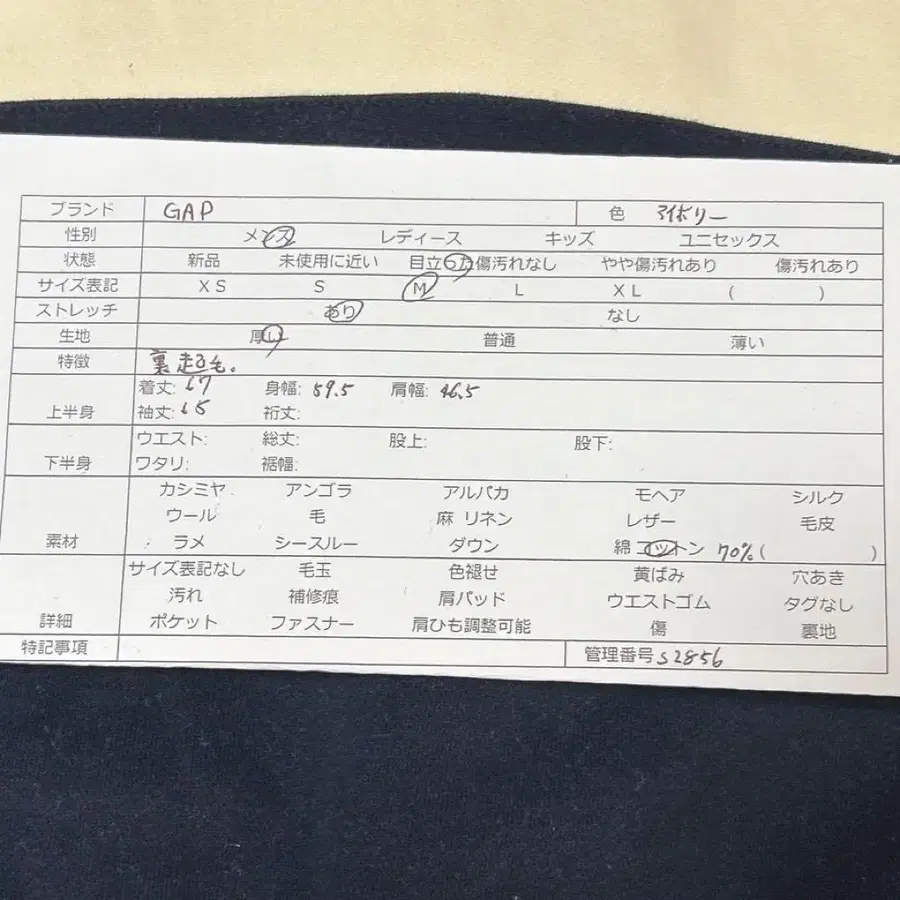 ブランド GAP 色 アイボリー
性別 メンズ レディース キッズ ユニセックス
状態 新品 未使用に近い 目立った傷汚れなし やや傷汚れあり 傷汚れあり
サイズ表記 XS S M L XL ( )
ストレッチ あり なし
生地 厚い 普通 薄い
特徴 裏起毛.
着丈: 67 身幅: 59.5 肩幅: 46.5
上半身 袖丈: 65 裄丈:
ウエスト: 総丈: 股上: 股下:
下半身 ワタリ: 裾幅:
カシミヤ アンゴラ アルパカ モヘア シルク
ウール 毛 麻 リネン レザー 毛皮
素材 ラメ シースルー ダウン 綿 コットン 70% ( )
サイズ表記なし 毛玉 色褪せ 黄ばみ 穴あき
汚れ 補修痕 肩パッド ウエストゴム タグなし
詳細 ポケット ファスナー 肩ひも調整可能 傷 裏地
特記事項 管理番号 S2856